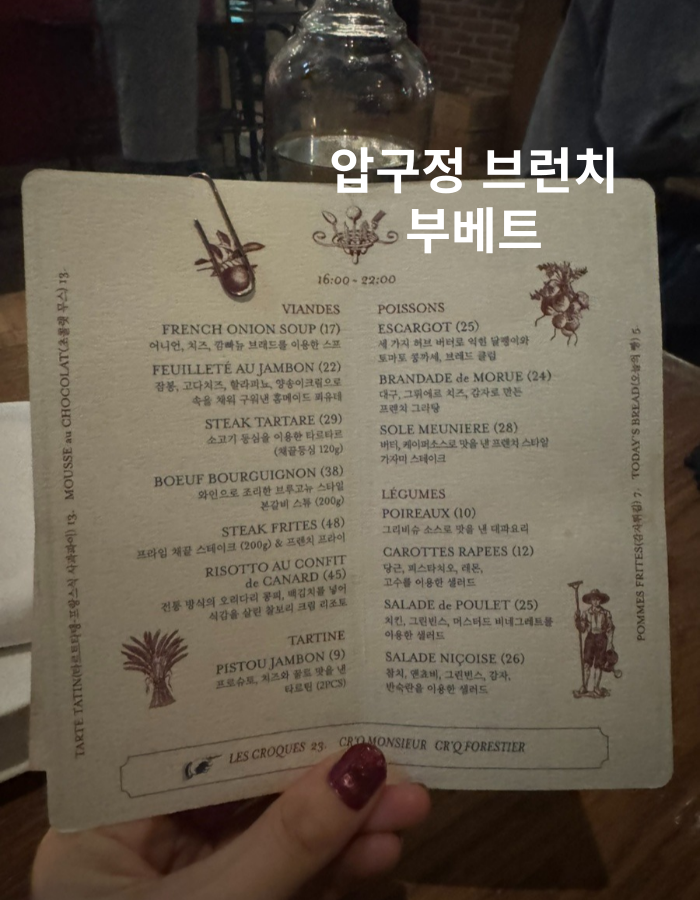 압구정 브런치
부베트
16:00 - 22:00
VIANDES
FRENCH ONION SOUP (17)
어니언, 치즈, 깜빠뉴 브레드를 이용한 스프
FEUILLETÉ AU JAMBON (22)
잠봉, 고다치즈, 할라피뇨, 양송이크림으로
속을 채워 구워낸 홈메이드 푀유테
STEAK TARTARE (29)
소고기 등심을 이용한 타르타르
(채끝등심 120g)
BOEUF BOURGUIGNON (38)
와인으로 조리한 브루고뉴 스타일
본갈비 스튜 (200g)
STEAK FRITES (48)
프라임 채끝 스테이크 (200g) & 프렌치 프라이
RISOTTO AU CONFIT
de CANARD (45)
전통 방식의 오리다리 콩피, 백김치를 넣어
식감을 살린 찰보리 크림 리조토
TARTINE
PISTOU JAMBON (9)
프로슈토, 치즈와 꿀로 맛을 낸
타르틴 (2PCS)
POISSONS
ESCARGOT (25)
세 가지 허브 버터로 익힌 달팽이와
토마토 콩까세, 브레드 클럽
BRANDADE de MORUE (24)
대구, 그뤼에르 치즈, 감자로 만든
프렌치 그라탕
SOLE MEUNIERE (28)
버터, 케이퍼소스로 맛을 낸 프렌치 스타일
가자미 스테이크
LÉGUMES
POIREAUX (10)
그리비슈 소스로 맛을 낸 대파요리
CAROTTES RAPEES (12)
당근, 피스타치오, 레몬,
고수를 이용한 샐러드
SALADE de POULET (25)
치킨, 그린빈스, 머스터드 비네그레트를
이용한 샐러드
SALADE NIÇOISE (26)
참치, 앤쵸비, 그린빈스, 감자,
반숙란을 이용한 샐러드
TARTE TATIN(타르트타탱-프랑스식 사과파이) 13. MOUSSE au CHOCOLAT(초콜렛 무스) 13.
POMMES FRITES(감자튀김) 7. TODAY'S BREAD(오늘의 빵) 5
LES CROQUES 23. CR'Q MONSIEUR CR'Q FORESTIER